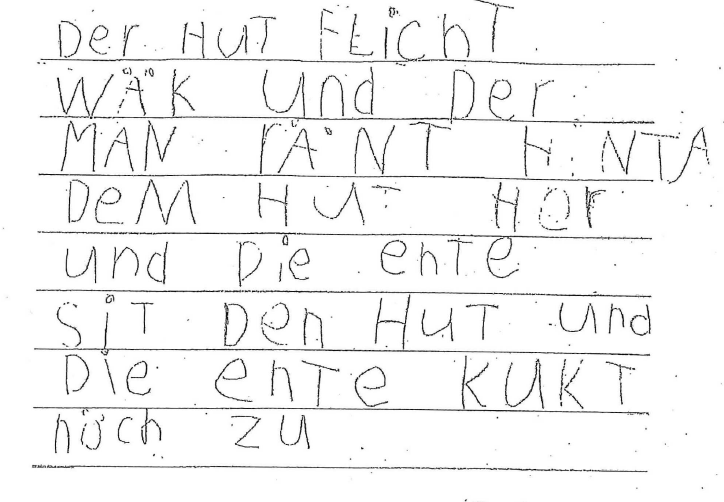 Der HUT FLichT
WÄK und Der
MAN rÄNT HiNTA
DeM HUT HOr
und Die enTe
SiT Den HuT und
Die enTe KUKT
noch zu